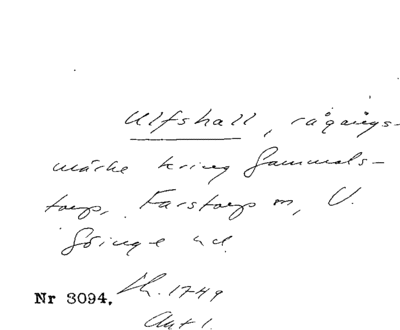 Ulfshall, rågångs-
märke kring Gammals-
torp, Farstorps sn, V.
Göinge hd.
Nr 3094. Lh. 1749
Akt 1.